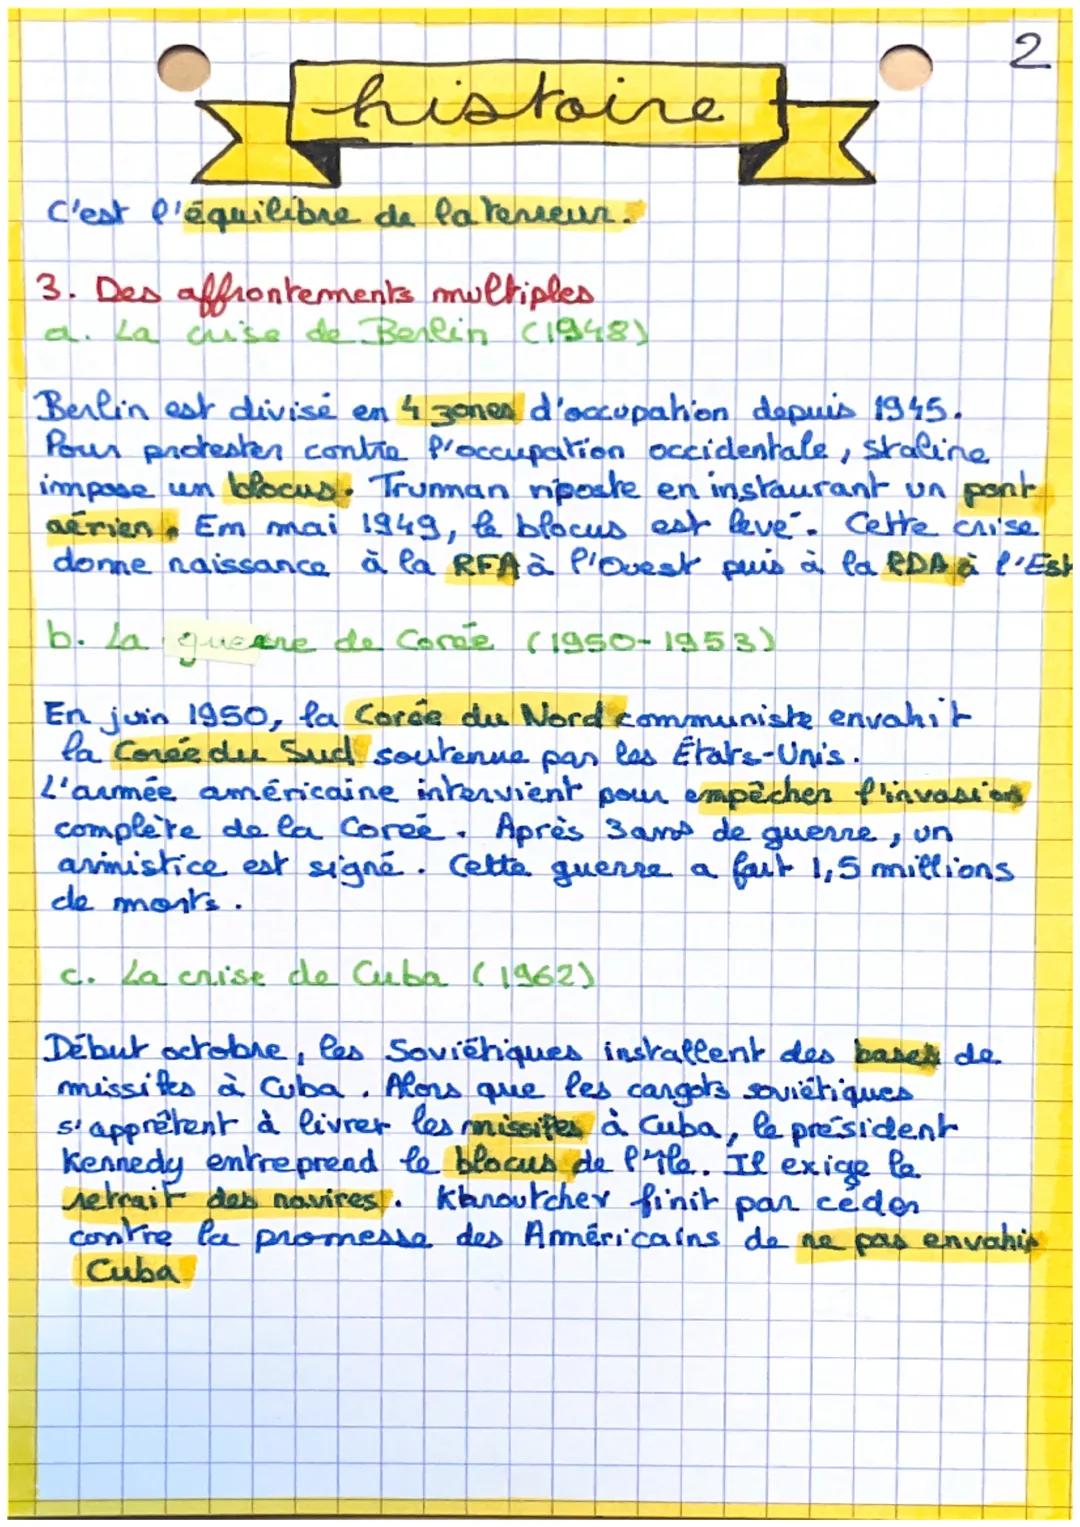 2
histoire
C'est l'équilibre de la terreur.
3. Des affrontements multiples
a. La crise de Berlin (1948)
Berlin est divisé en 4 zones d'occupation depuis 1945.
Pour protester contre l'occupation occidentale, Staline
impose un blocus. Truman riposte en instaurant un pont
aérien. Em mai 1949, le blocus est levé. Cette crise
donne naissance à la RFA à l'Ouest puis à la RDA à l'Est
b. La guerre de Corée (1950-1953)
En juin 1950, la Corée du Nord communiste envahit
la Corée du Sud soutenue par les États-Unis.
L'armée américaine intervient pour empêcher l'invasion
complète de la Coreé. Après 3 ans de guerre, un
armistice est signé. Cette guerre a fait 1,5 millions
de morts.
c. La crise de Cuba (1962)
Début octobre, les Soviétiques installent des bases de
missiles à Cuba. Alors que les cargots soviétiques
s'apprêtent à livrer les missiles à Cuba, le président
Kennedy entreprend le blocus de l'île. Il exige le
retrait des navires. Khroutchev finit par céder
contre la promesse des Américains de ne pas envahir
Cuba